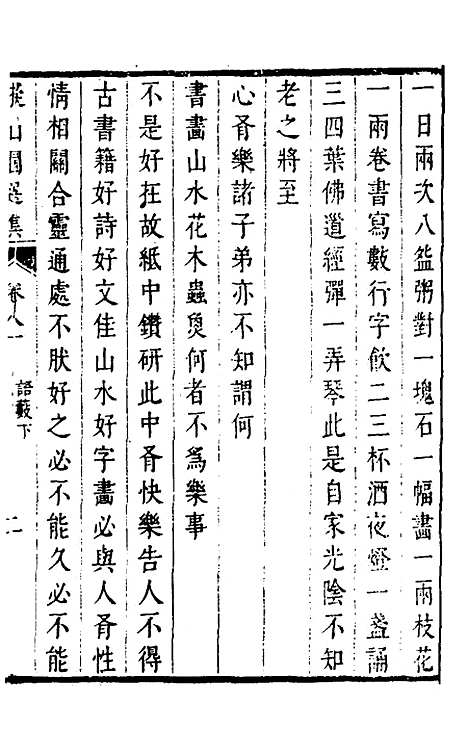 一日兩次八盌粥對一塊石一幅畵一兩枝花
一兩卷書寫數行字飲二三杯酒夜燈一盞誦
三四葉佛道經彈一弄琴此是自家光陰不知
老之將至
心肴樂諸子弟亦不知謂何
書畵山水花木蟲魚何者不爲樂事
不是好在故紙中鑽研此中肴快樂告人不得
古書籍好詩好文佳山水好字畵必與人肴性
情相關合靈通處不肰好之必不能久必不能
擬山園選集
卷八一
語藪下
二